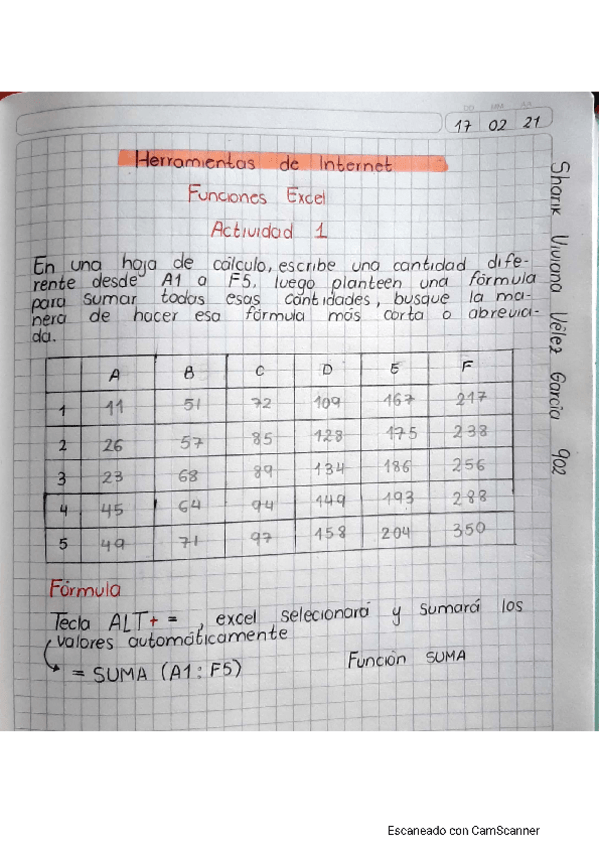 DD MM AA
17 02 21
Herramientas de Internet
Funciones Excel
Actividad 1
En una hoja de cálculo, escribe una cantidad dife-
rente desde A1 a F5, luego planteen una fórmula
para sumar todas esas cantidades, busque la ma-
nera de hacer esa fórmula más corta o abrevia-
da.
A B C D E F
1 11 51 72 109 167 217
2 26 57 85 128 175 238
3 23 68 89 134 186 256
4 45 64 94 149 193 288
5 49 71 97 158 204 350
Fórmula
Tecla ALT + = , excel selecionará y sumará los
valores automáticamente
= SUMA (A1:F5) Función SUMA
Sharik Viviana Vélez García 902
Escaneado con CamScanner